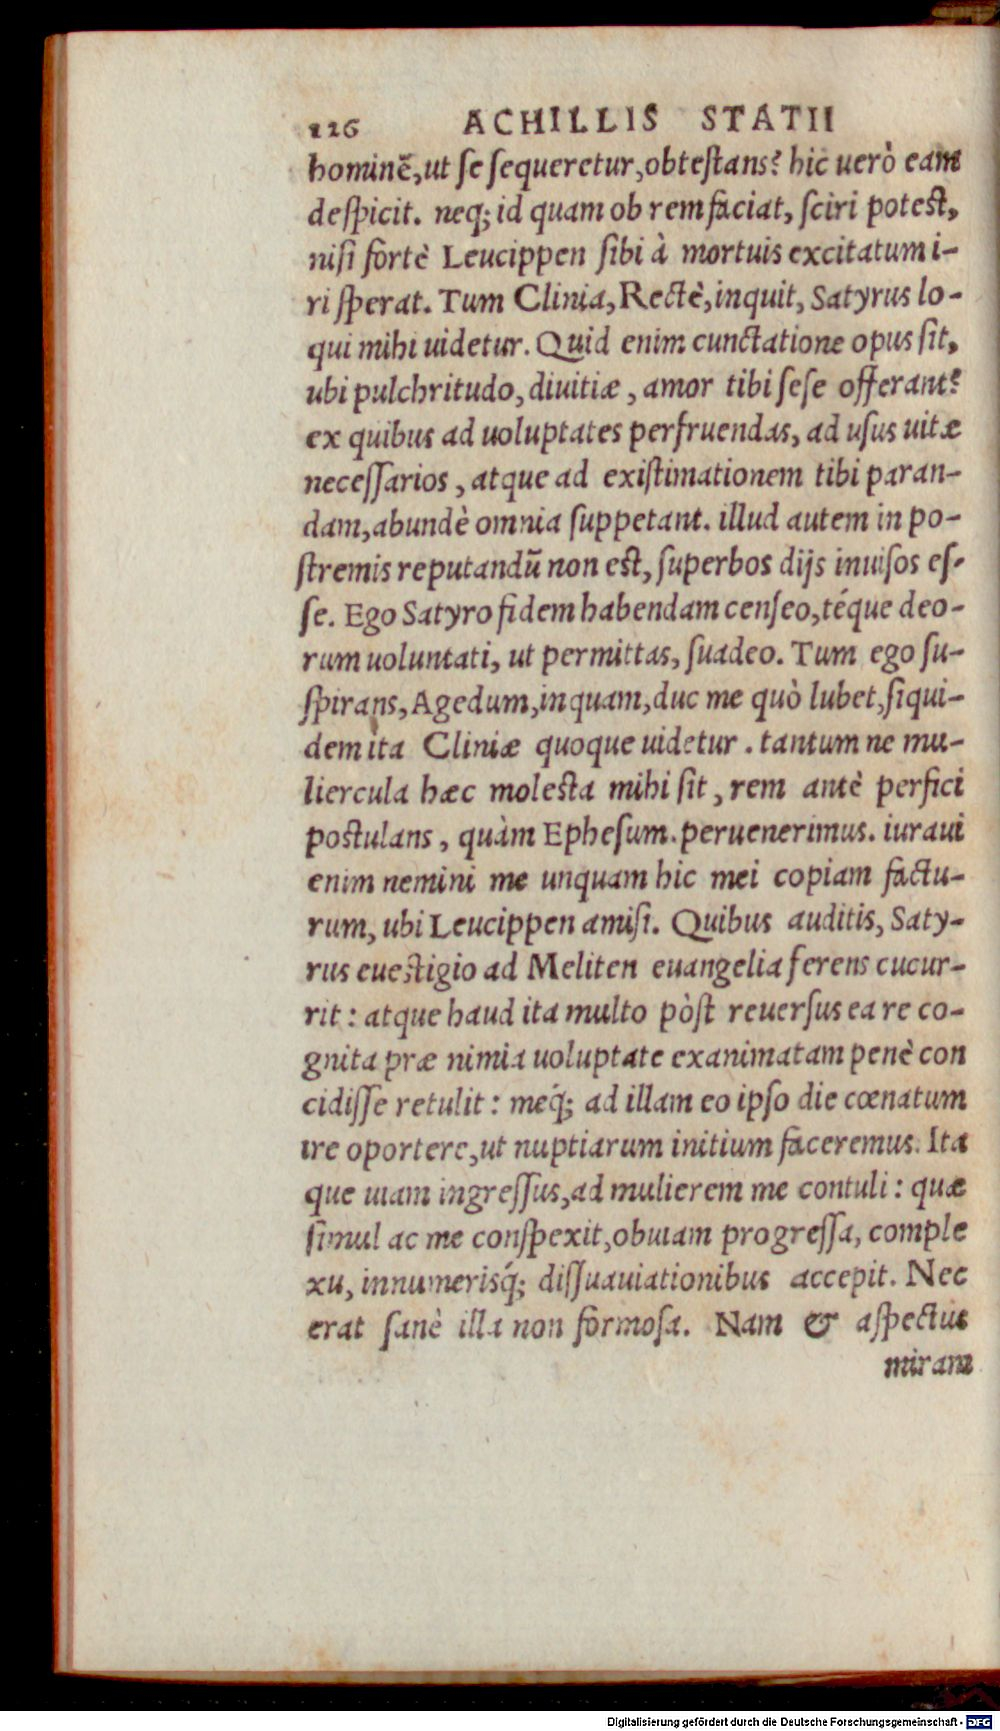 126 ACHILLIS STATII
hominē, ut ſe ſequeretur, obteſtans? hic uerò eam
deſpicit. neq; id quam ob rem faciat, ſciri poteſt,
niſi fortè Leucippen ſibi à mortuis excitatum i-
ri ſperat. Tum Clinia, Rectè, inquit, Satyrus lo-
qui mihi uidetur. Quid enim cunctatione opus ſit,
ubi pulchritudo, diuitiæ, amor tibi ſeſe offerant?
ex quibus ad uoluptates perfruendas, ad uſus uitæ
neceſſarios, atque ad exiſtimationem tibi paran-
dam, abundè omnia ſuppetant. illud autem in po-
ſtremis reputandū non eſt, ſuperbos dijs inuiſos eſ-
ſe. Ego Satyro fidem habendam cenſeo, téque deo-
rum uoluntati, ut permittas, ſuadeo. Tum ego ſu-
ſpirans, Agedum, inquam, duc me quò lubet, ſiqui-
dem ita Cliniæ quoque uidetur. tantum ne mu-
liercula hæc moleſta mihi ſit, rem antè perfici
poſtulans, quàm Epheſum. peruenerimus. iuraui
enim nemini me unquam hic mei copiam factu-
rum, ubi Leucippen amiſi. Quibus auditis, Saty-
rus eueſtigio ad Meliten euangelia ferens cucur-
rit: atque haud ita multo pòſt reuerſus ea re co-
gnita præ nimia uoluptate exanimatam penè con
cidiſſe retulit: meq́; ad illam eo ipſo die cœnatum
ire oportere, ut nuptiarum initium faceremus. Ita
que uiam ingreſſus, ad mulierem me contuli: quæ
ſimul ac me conſpexit, obuiam progreſſa, comple
xu, innumerisq́; diſſuauiationibus accepit. Nec
erat ſanè illa non formoſa. Nam & aſpectus
miram
Digitalisierung gefördert durch die Deutsche Forschungsgemeinschaft - DFG